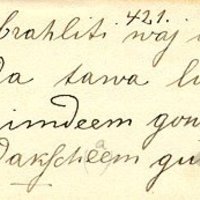 421.
brahliti waj
da tawa lu
imdeem gow
dakscheem gu